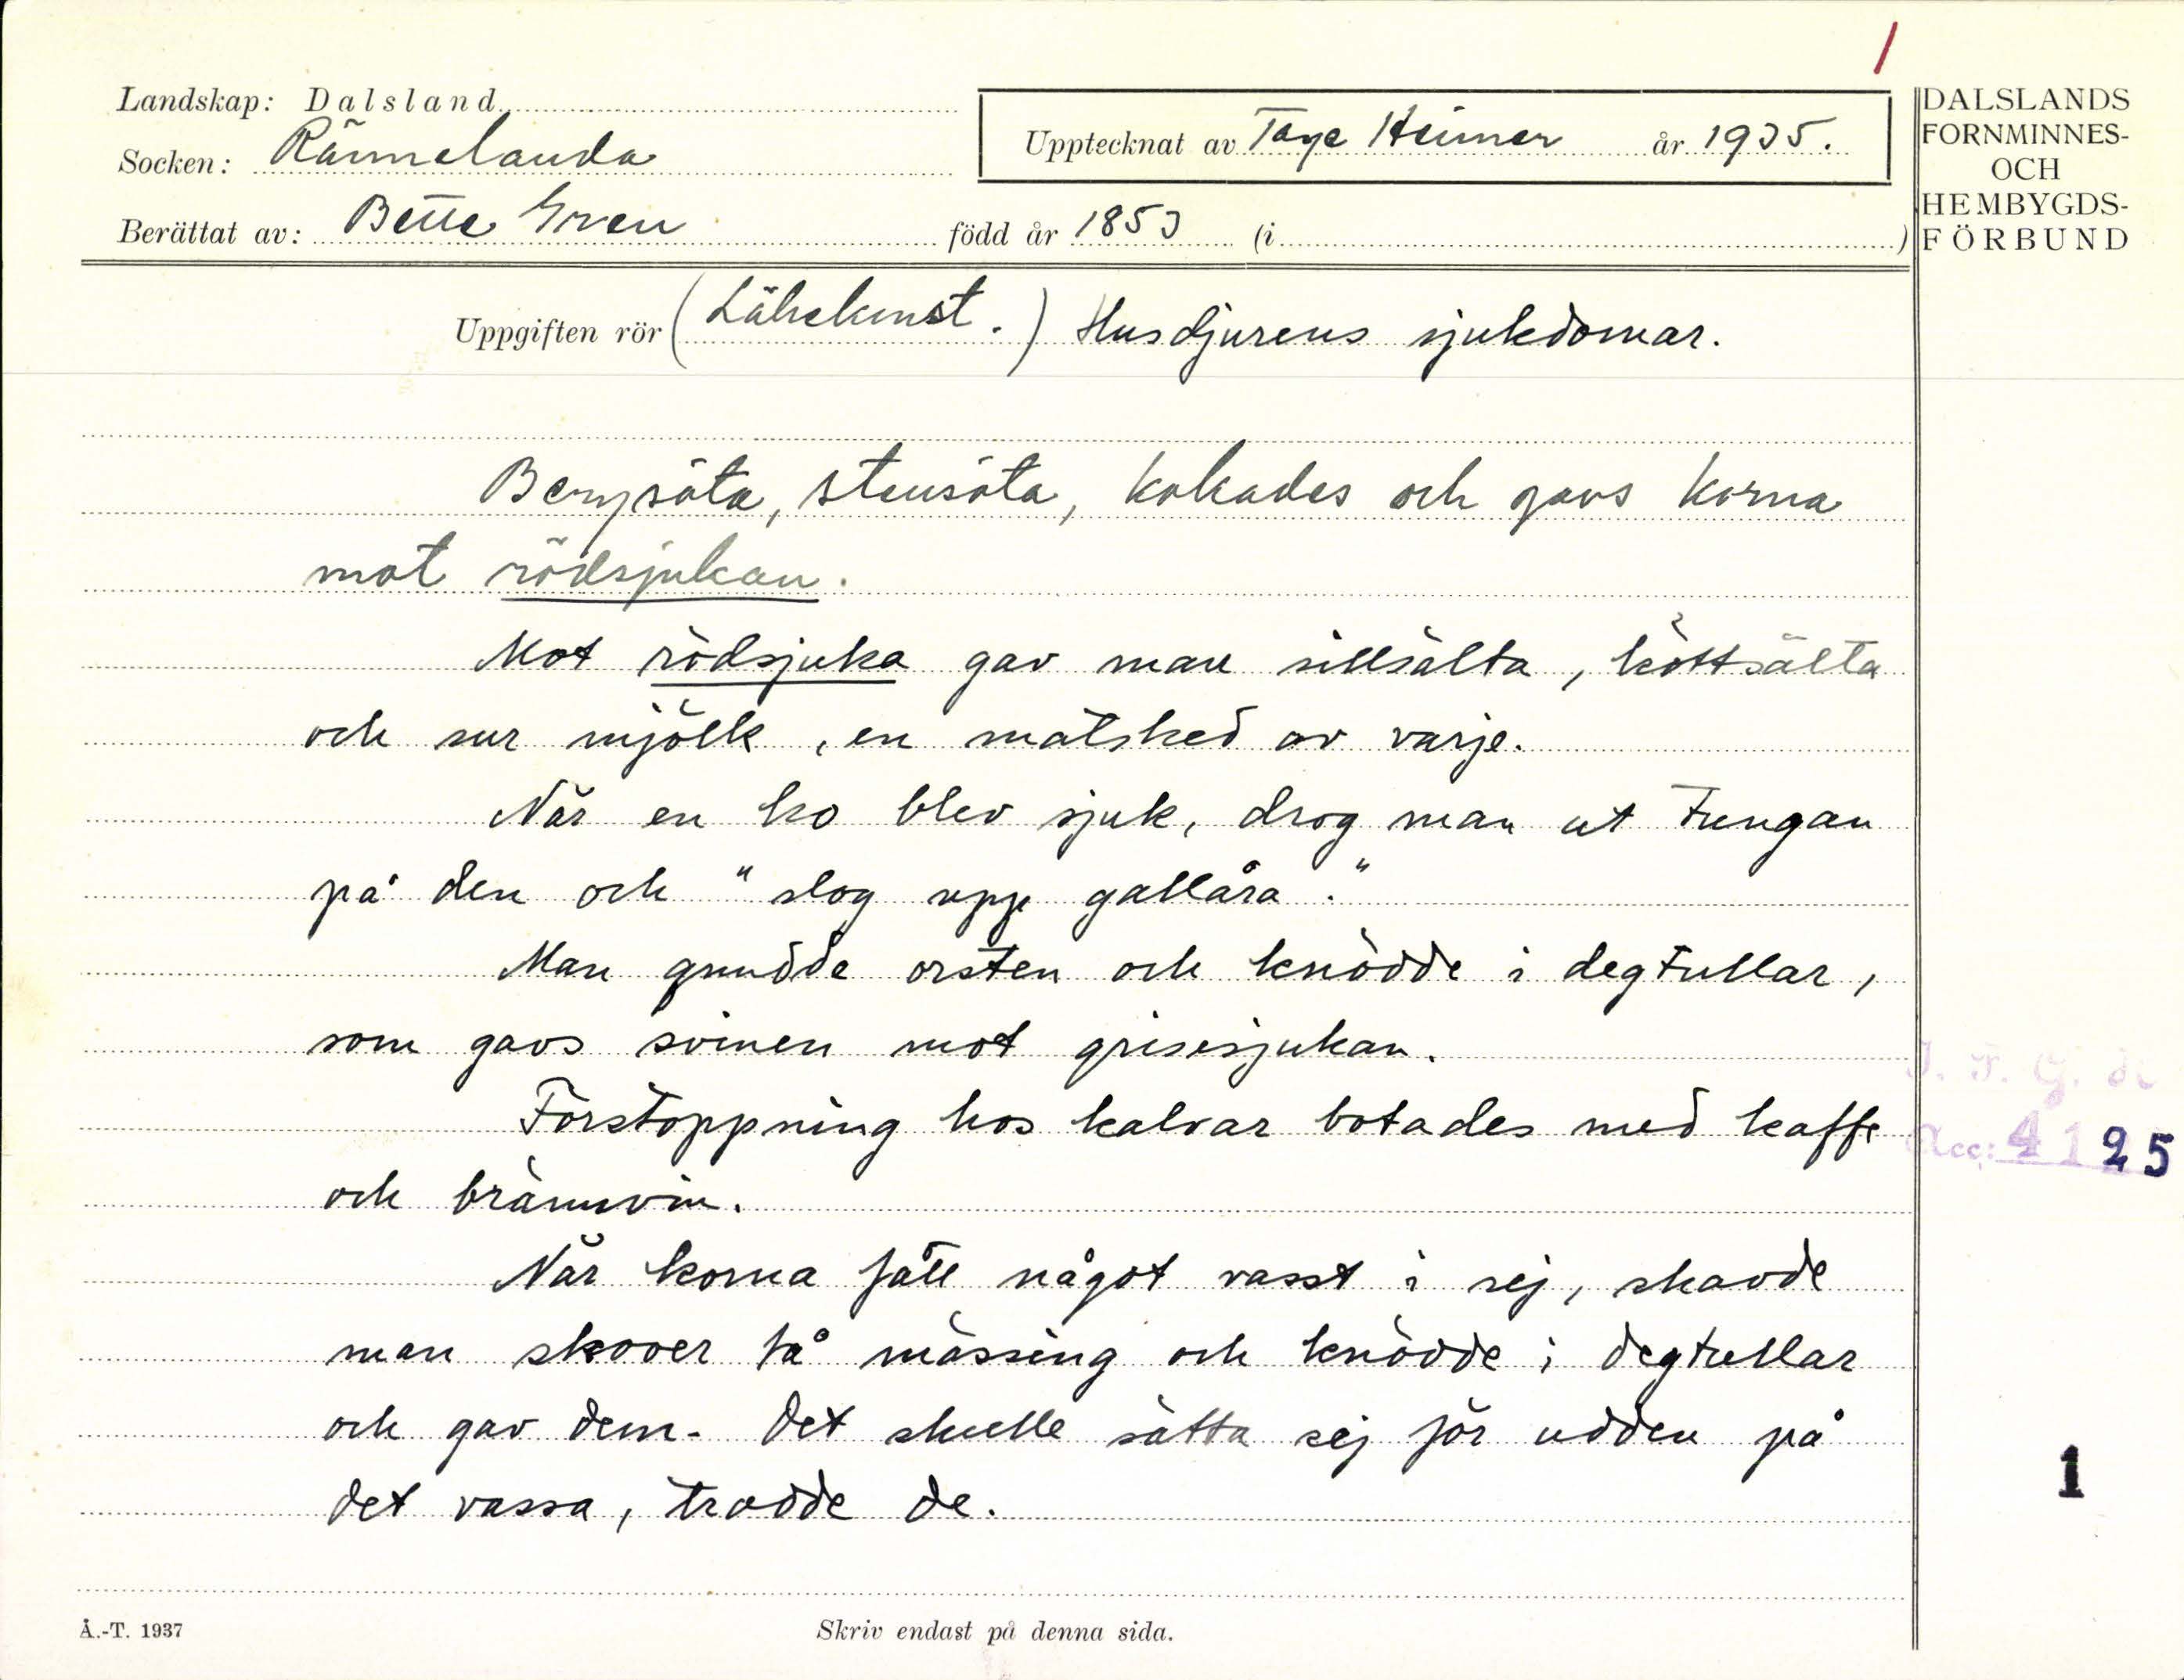 1
Landskap: Dalsland
Socken: Rännelanda
Berättat av: Bette Gren född år 1853 (i )
Upptecknat av Tage Heimer år 1935.
DALSLANDS
FORNMINNES-
OCH
HEMBYGDS-
FÖRBUND
Uppgiften rör (Läkekonst.) Husdjurens sjukdomar.
Bergsöta, stensöta, kokades och gavs korna
mot rödsjukan.
Mot rödsjuka gav man sillsälta, köttsälta
och sur mjölk, en matsked av varje.
När en ko blev sjuk, drog man ut tungan
på den och "slog upp gallåra."
Man gnudde orsten och knödde i degtullar,
som gavs svinen mot grisesjukan.
Förstoppning hos kalvar botades med kaffe
och brännvin.
När korna fått något vasst i sej, skavde
man skover tå mässing och knödde i degtullar
och gav dem. Det skulle sätta sej för udden på
det vassa, trodde de.
Acc: 4125
1
Å.-T. 1937
Skriv endast på denna sida.